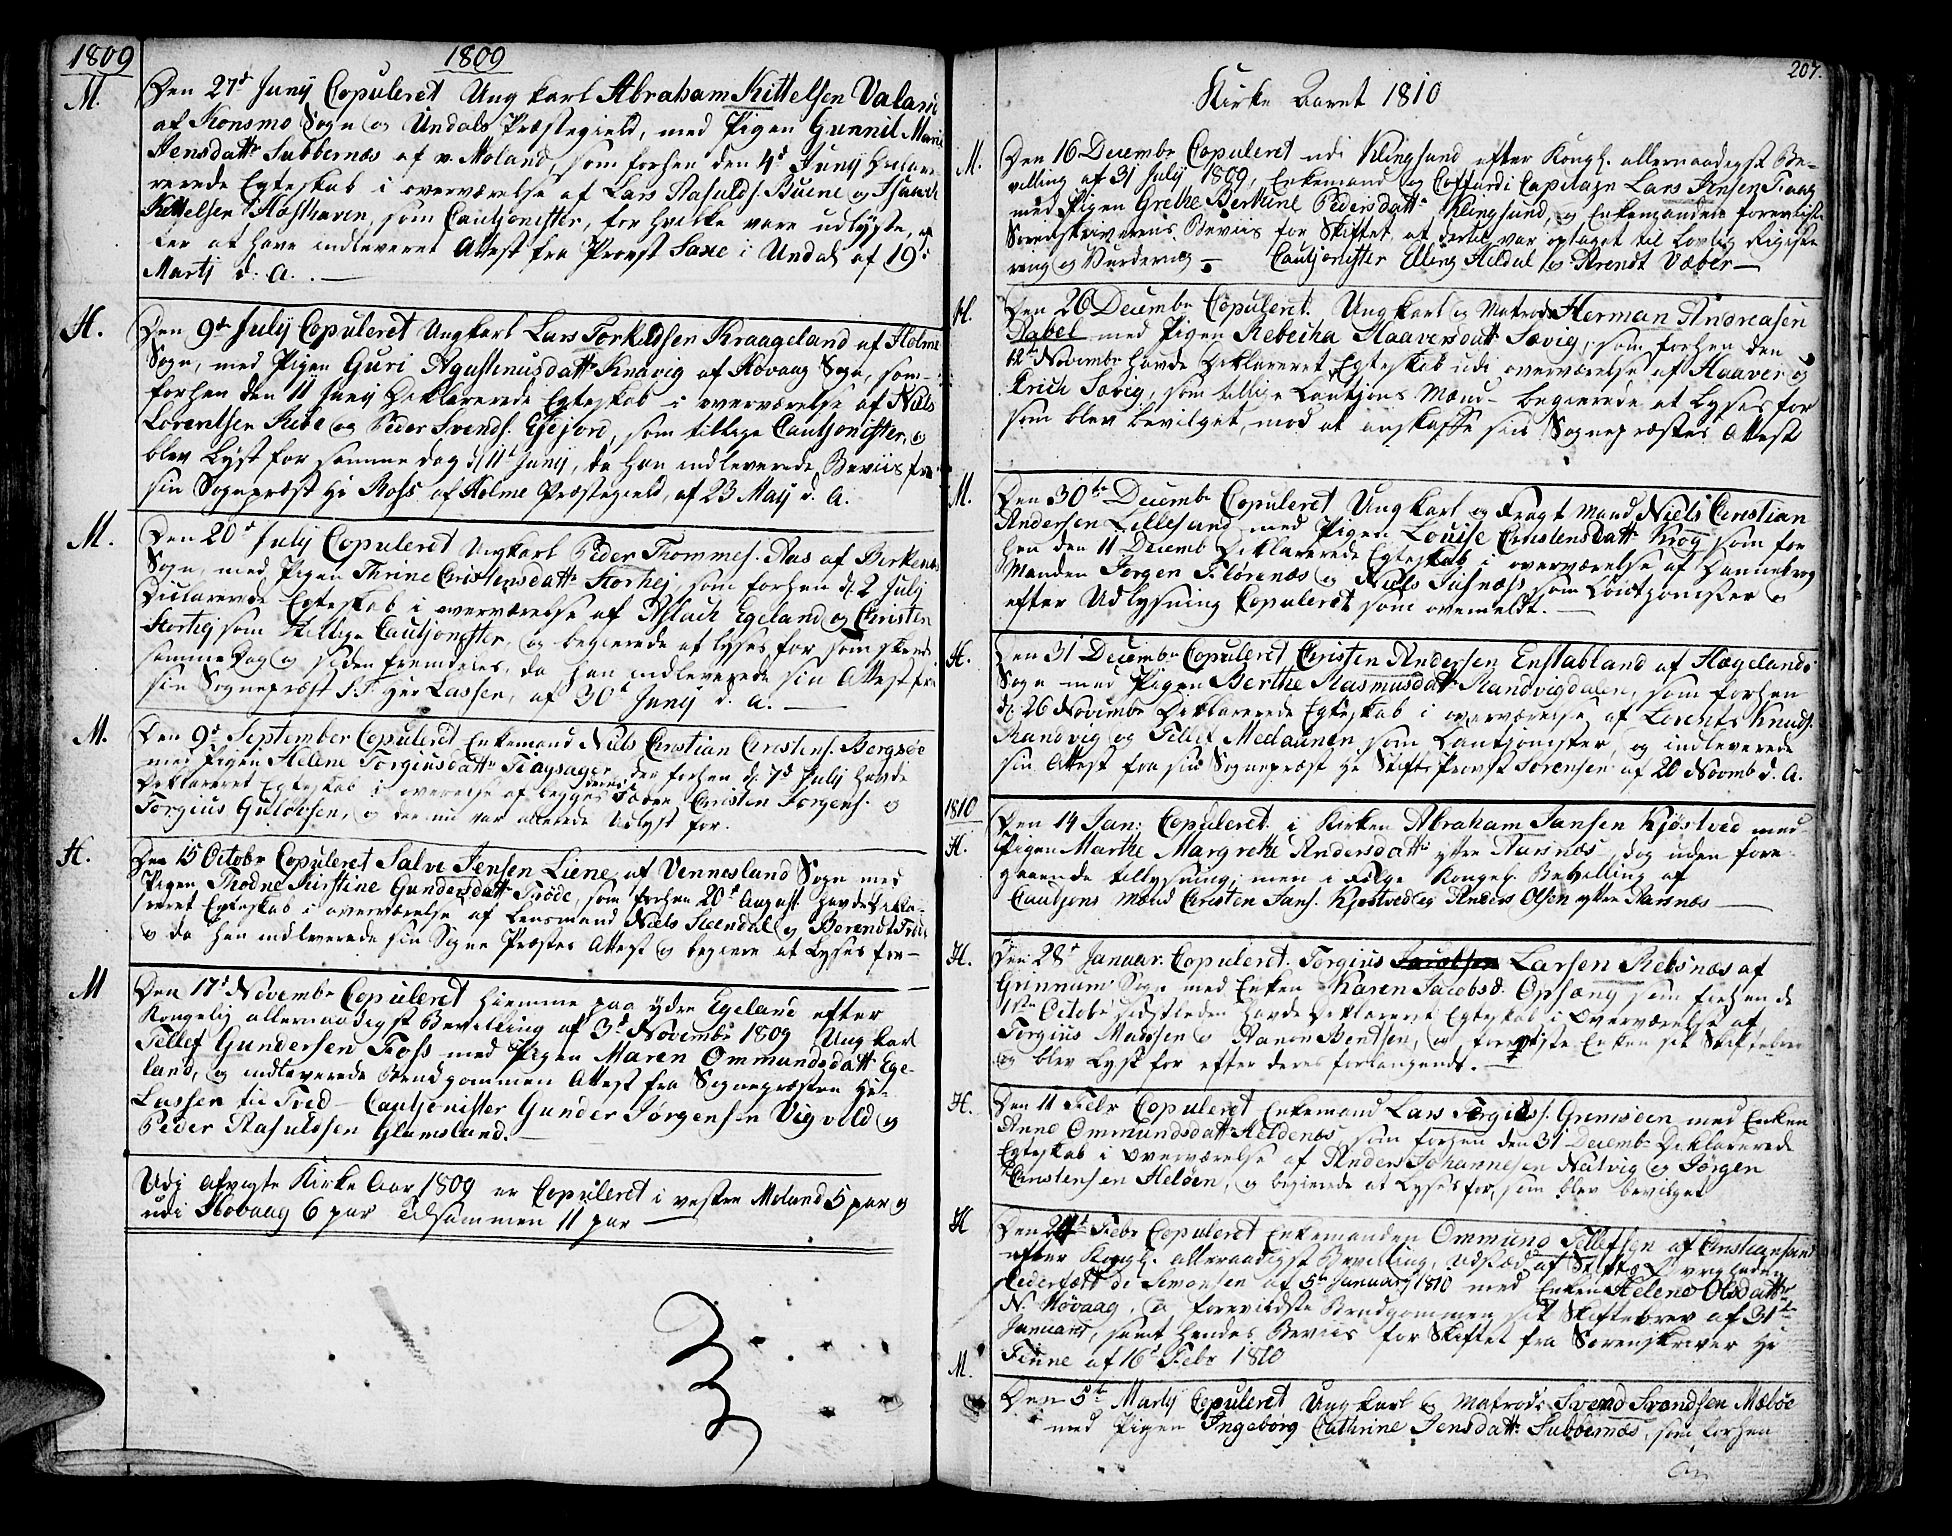 1809
1809
M.
Den 27d Junij Copuleret Ung karl Abraham Kittelsen Valand
af Konsmo Sogn og Undals Præstegield, med Pigen Gunnil Marie
Jensdattr Subbernæs af v. Moland, som forhen den 4d Junij
rerede Egteskab i overværelse af Lars Aasulds. Buene og Isaach
Kittelsen Høsthaven, som Cautjonister, for hvilke vare udlyste,
ter at have indleveret Attest fra Provst Saxe i Undal af 19d
Martj d. a. —
H.
Den 9de Julij Copuleret Ungkarl Lars Torkildsen Kraageland af Holme
Sogn, med Pigen Guri Agustinusdattr Knævig af Høvaag Sogn, som
forhen den 11 Junij Deklarerede Egteskab i overværelse af Niels
Lorentsen Ribe og Peder Svends. Ejefjord, som tillige Cautjonister, og
blev Lyst for samme dag d. 11t Junij, da han indleverede Beviis fra
sin Sognepræst Hr Ross af Holme Præstegield, af 23 Maij d. A.
M.
Den 20d Julij Copuleret Ungkarl Peder Thommes. Aas af Birkenæs
Sogn, med Pigen Thrine Christensdattr Storhej, som forhen d. 2 Julj
Diclarerede Egteskab i overværelse af Aslach Egeland og Christen
Stortiej som tillige Cautjonister, og begierede at lyses for som skeede
samme Dag og siden fremdeles, da han indleverede sin Attest fra
sin Sognepræst S.T. Herr Lassen, af 30t Junij d. a. —
M.
Den 9d September Copuleret Enkemand Niels Christian Christens. Bergsøe
med Pigen Helene Torgiusdattr Tingsager, der forhen d. 7d Julij havde
Deklareret Egteskab i overværelse af begges Fædre Christen Jorgens. og
Torgius Gulovsen, og der nu var allerede Udlyst for.
H.
Den 15 Octobr Copuleret Salve Jensen Liene, af Vennesland Sogn med
Pigen Thodne Kirstine Gundersdattr Trøde, som forhen 20d August havde Dekla-
reret Egteskab i overværelse af Lensmand Niels Steendal og Berendt Trøde
og da han indleverede sin Sogne Præstes Attest og begiere at Lyses for —
M
Den 17d Novembr Copuleret hiemme paa ydre Egeland efter
Kongelig allernaadigst Bevilling af 3d Novembr 1809 Ungkarl
Tellef Gundersen Foss med Pigen Maren Ommundsdattr Ege-
land, og indleverede Brudgommen Attest fra Sognepræsten Hr
Lassen til Tved — Cautjonister Gunder Jørgensen Vigvold og
Peder Aasulssen Glamsland. —
Udi afvigte Kirke Aar 1809 er Copuleret i vestre Moland 5 par og
udi Høvaag 6 par tilsammen 11 par —
207.
Kirke Aaret 1810
M.
Den 16 Decembr Copuleret udi Klingsund efter Kongl. allernaadigst Be-
villing af 31 Julij 1809, Enkemand og Coffardi Capitajn Lars Jensen
med Pigen Grethe Berthine Pedersdattr Klingsund, og Enkemanden foreviiste
Sorenskriverens Beviis for Skiftet, at dertil var optaget til Lovlig Regist-
rering og Vurdering — Cautjonister Elling Heldal og Arendt Væber —
H.
Den 26 Decembr Copuleret Ungkarl og Matros Herman Andreasen
Dabel med Pigen Rebecka Haaversdattr Sævig, som forhen den
12t Novembr havde Deklareret Egteskab udi overværelse af Haaver og
Erich Sævig, som tillige Cautjons Mænd — begierede at Lyses for
som blev bevilget, mod at anskaffe sin Sognepræstes Attest
M.
Den 30te Decembr Copuleret Ungkarl og Fragt Mand Niels Christian
Andersen Lillesand med Pigen Louise Christensdattr Krog som for
hen den 11 Decemb Deklarerede Egteskab i overværelse af Hanneborg
Manden Jorgen Florenæs og Niels Jusnæss som Cautjonister og
efter Udlysning Copuleret som ovenmeldt. —
H.
Den 31 Decembr Copuleret Christen Andersen Enstabland af Hægelands
Sogn med Pigen Berthe Rasmusdattr Randvigdalen, som forhen
d. 26 Novembr Deklarerede Egteskab i overværelse af Lorents Knuds.
Randvig og Tellef Medaunen som Cautjonister, og indleverede
sin Attest fra sin Sognepræst Hr Stifts Provst Sorensen af 20 Novemb d. A.
1810
H.
Den 14 Jan. Copuleret i Kirken Abraham Jansen Kjøstved med
Pigen Marthe Margrethe Andersdattr ytre Aarsnæs, dog uden fore-
gaaende tillysning, men i Følge Kongel. Bevilling af
Cautjons Mænd Christen Jans. Kjøstved og Anders Olsen ytre Aarsnæs —
H.
Den 28d Januar. Copuleret Torgius Larsen Rebsnæs af
Grennum Sogn med Enken Karen Jacobsd. Opsang som forhen de
1ste Octobr sidstleden havde Deklareret Egteskab i Overværelse af
Torgius Madssen og Aanon Bentsen, og foreviste Enken sit Skiftebrev
og blev Lyst for efter deres forlangende. —
H.
Den 11 Febr Copuleret Enkemand Lars Torgiuss. Grimsøen med Enken
Anne Ommundsdattr Heldenæs som forhen den 31 Decembr Deklarerede
Egteskab i overværelse af Anders Johannesen Nutvig og Jorgen
Christensen Heløen, og begierede at Lyses for, som blev bevilget
H
Den 24d Febr Copuleret Enkemanden Ommund Tellefsen af Christiansand
efter Kongl. allernaadigst Bevilling, udstæd af Stiftets Øvrigheden
Federfætt de Simonsen af 5te Januarj 1810 med Enken Helene Olsdattr
N. Høvaag, og forevisdste Brudgommen sit Skiftebrev af 31te
Januarj, samt hendes Beviis for Skiftet fra Sorenskriver Hr
Finne af 16d Febr 1810
M.
Den 5te Martij Copuleret Ungkarl og Matros Svend Svendsen Mæbøe
med Pigen Ingeborg Cathrine Jensdattr Subbernæs, som forhen